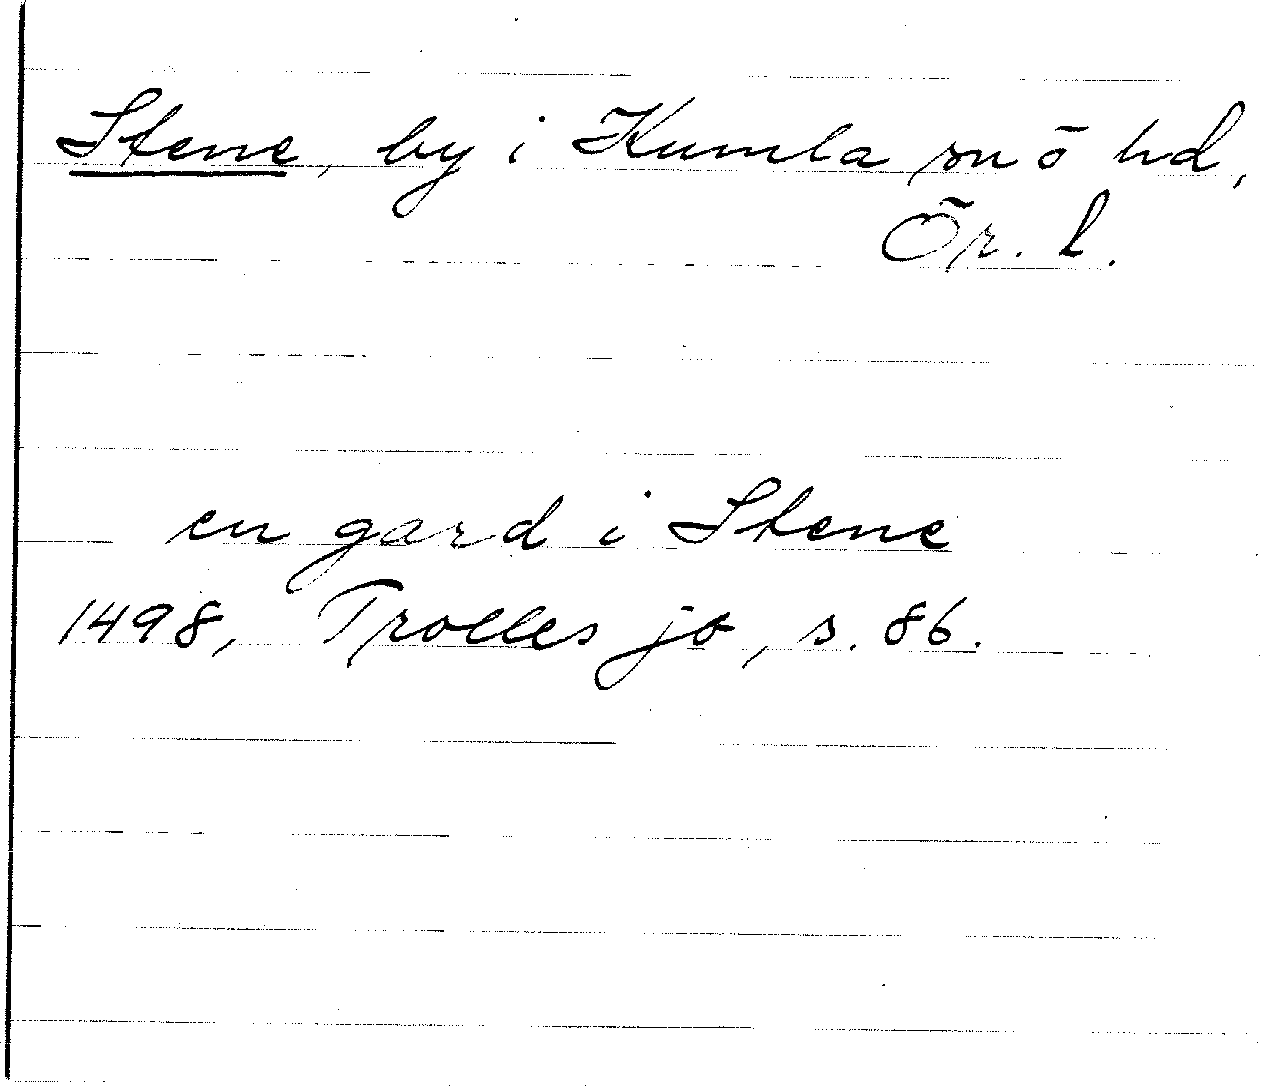 Stene, by i Kumla sn o hd,
Ör. l.
en gard i Stene
1498, Trolles jb, s. 86.